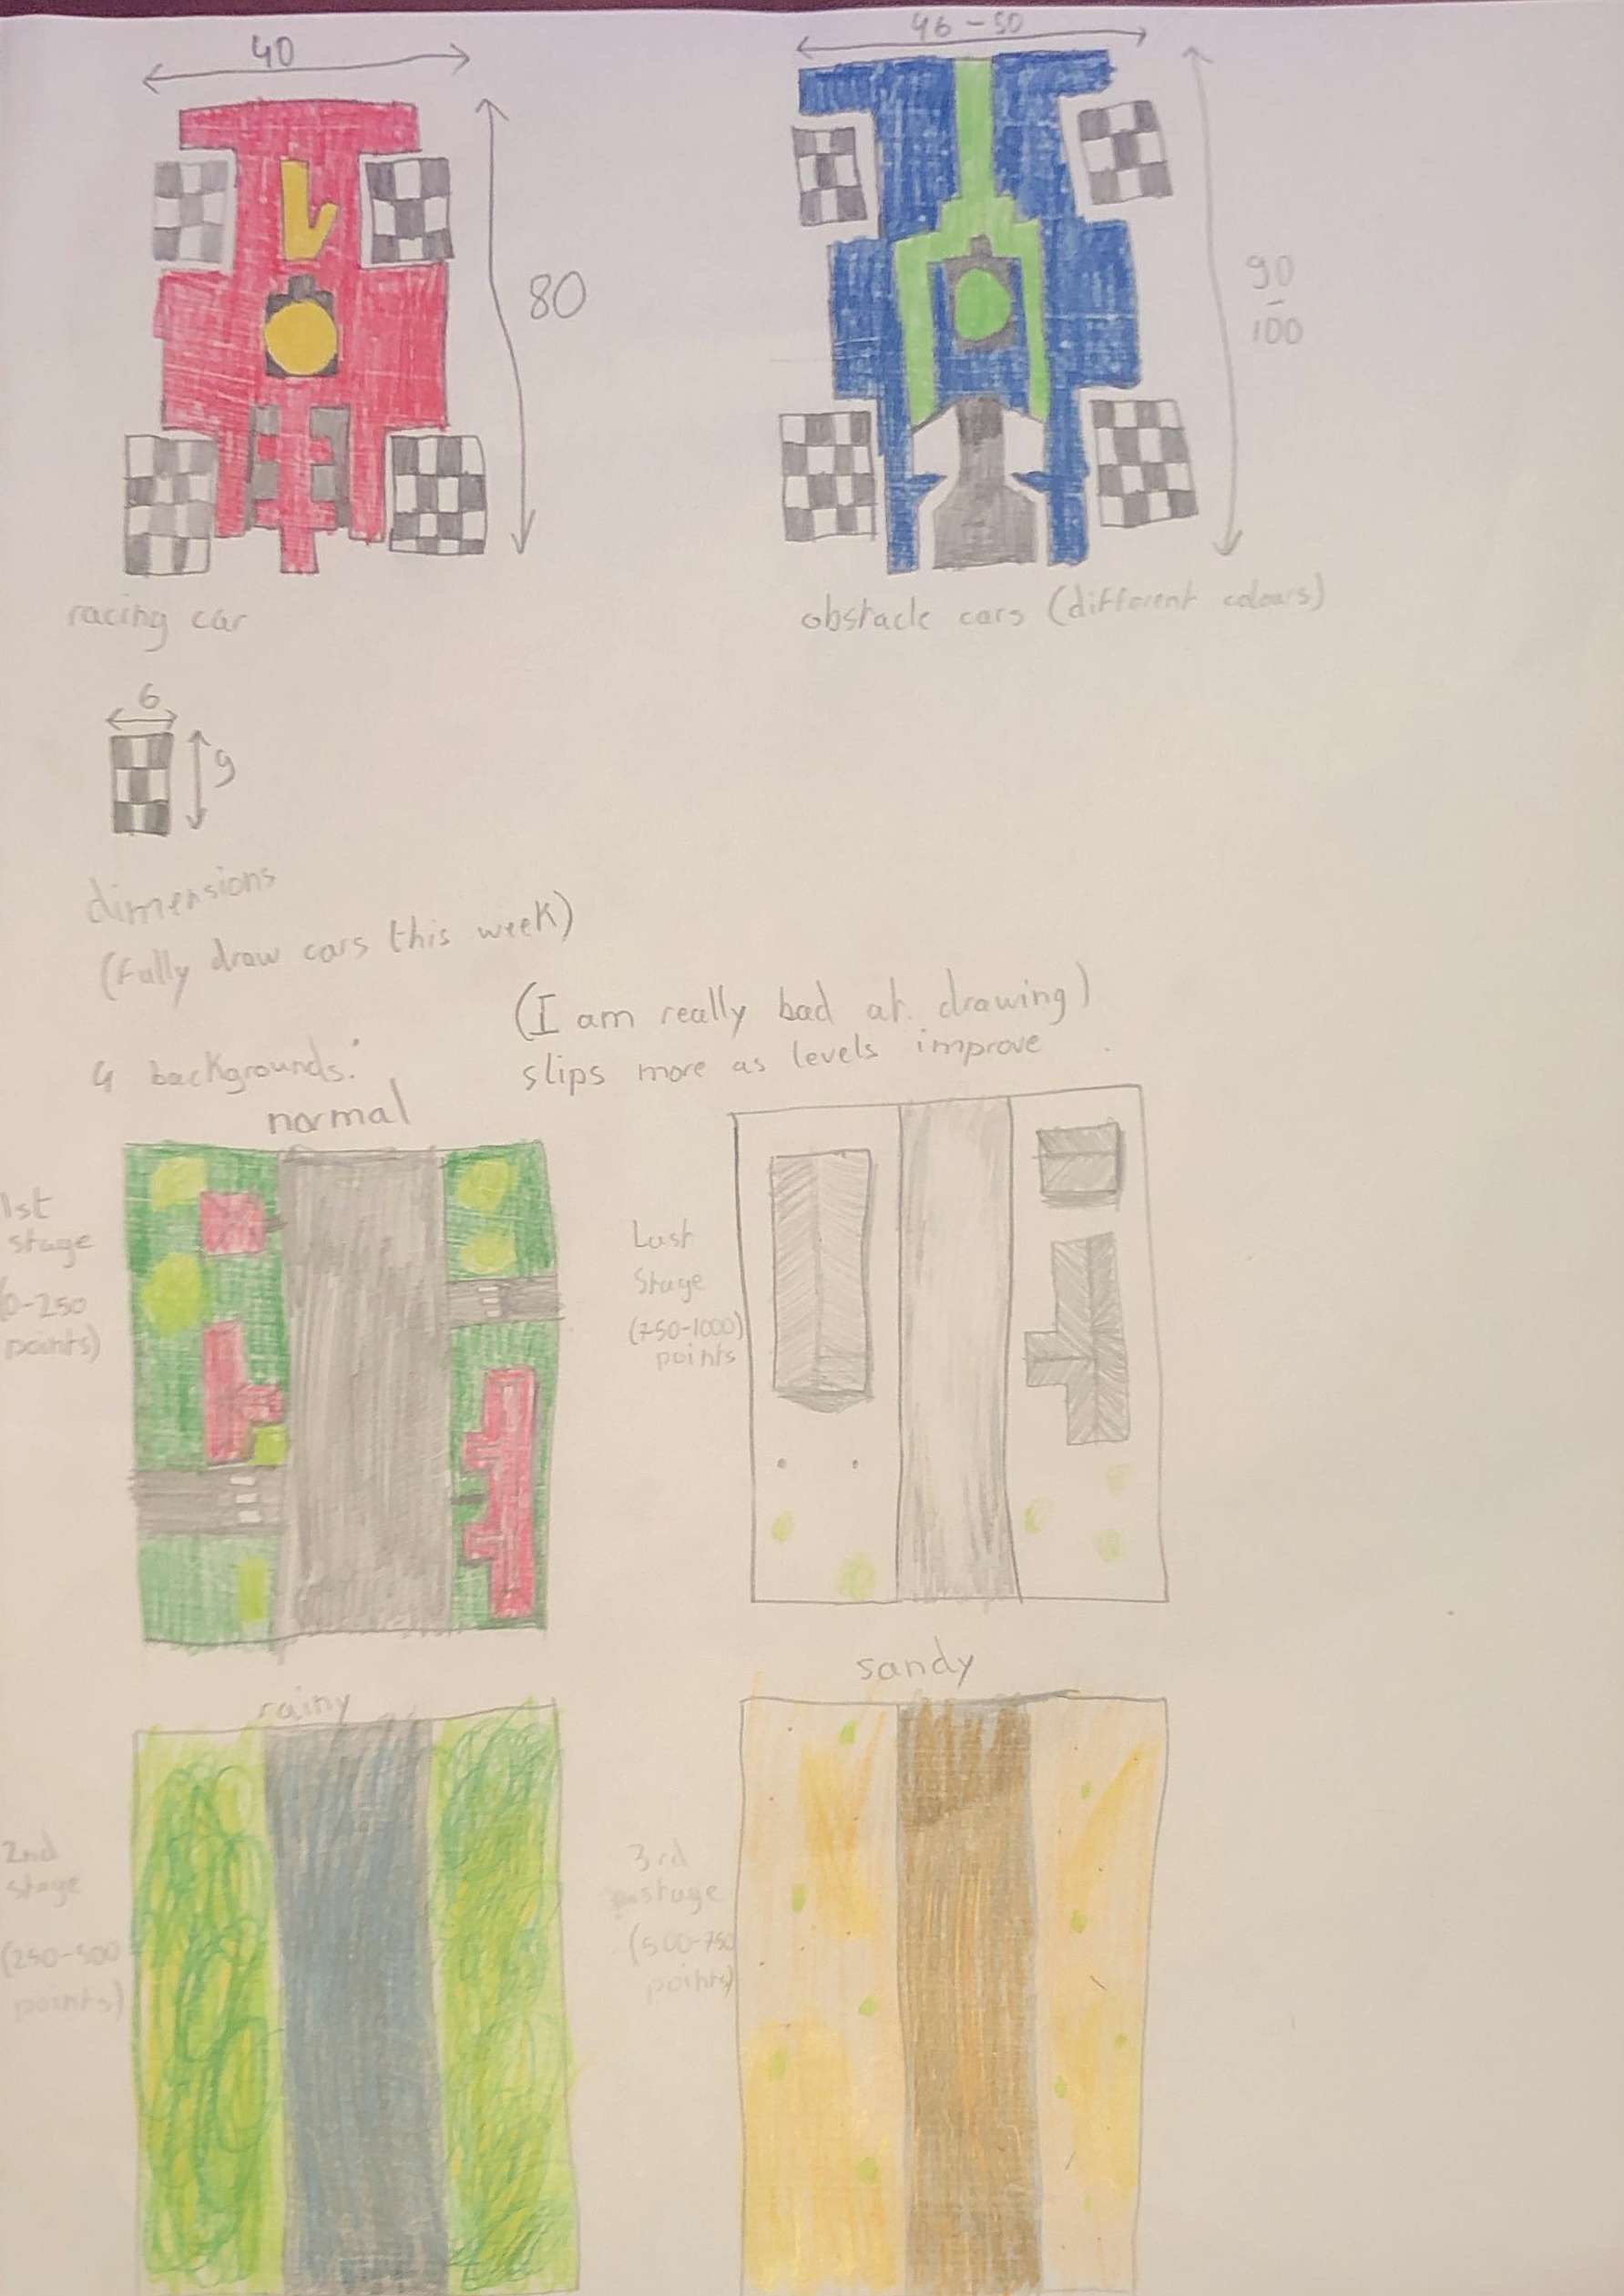 40
46 - 50
80
90
-
100
racing car
obstacle cars (different colours)
6
9
dimensions
(fully draw cars this week)
(I am really bad at drawing)
slips more as levels improve
4 backgrounds:
normal
1st
stage
(0-250
points)
Last
Stage
(750-1000)
points
rainy
sandy
2nd
stage
(250-500
points)
3rd
stage
(500-750
points)